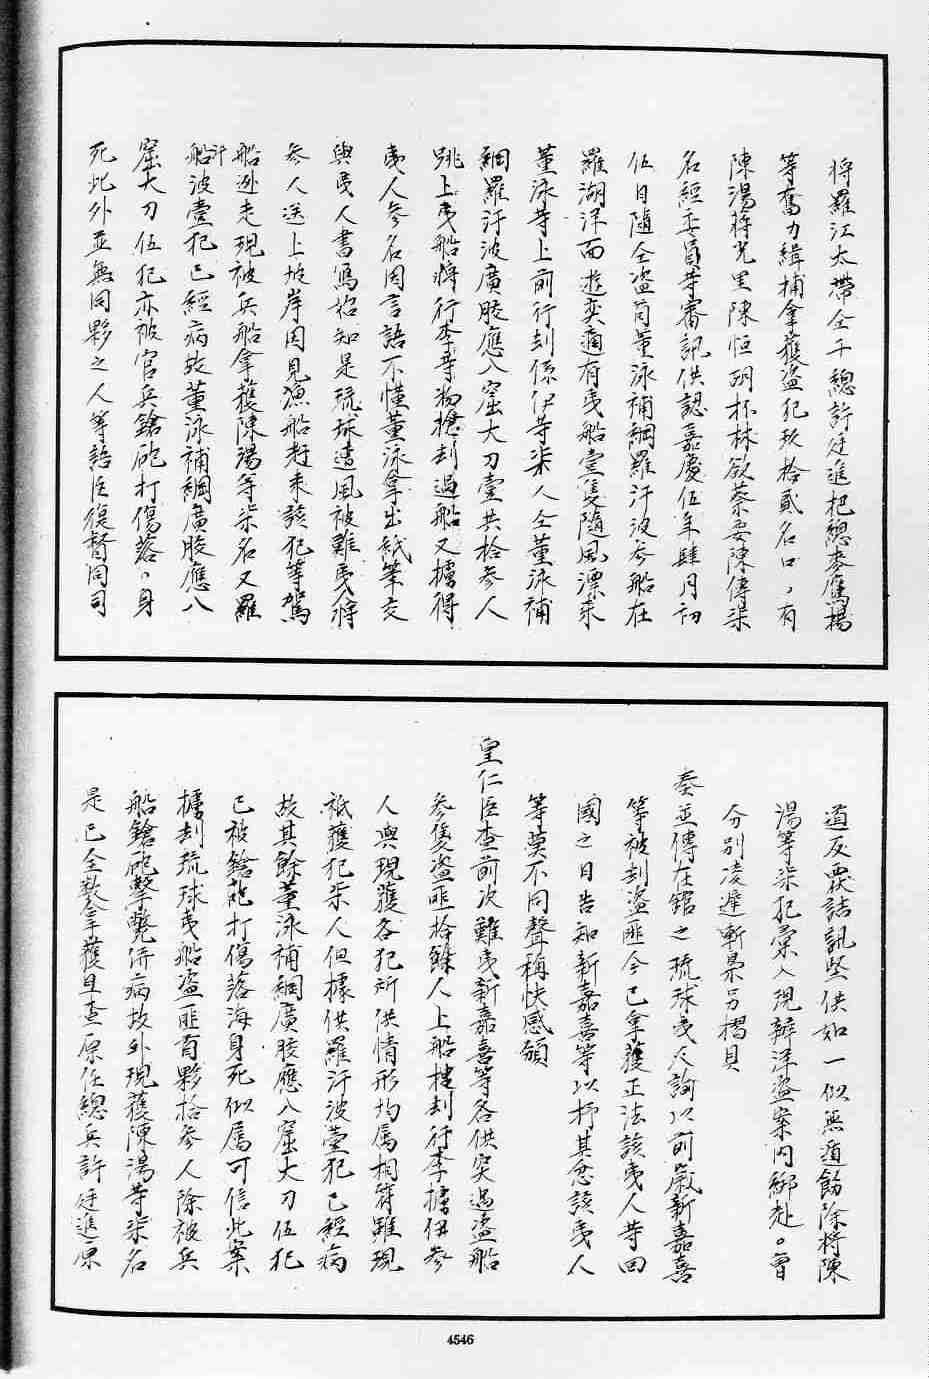 將羅江太帶仝千總許廷進把總麥鷹揚
等奮力緝捕拿獲盜犯玖拾貳名口、有
陳湯蔣光里陳恒明杯林欲蔡要陳傳柒
名經委員等審訊供認嘉慶伍年肆月初
伍日隨仝盜首董泳補綱羅汗波参船在
羅湖洋面遊奕適有夷船壹隻隨風漂來
董泳等上前行刦係伊等柒人仝董泳補
綱羅汗波廣肢應八窟大刀壹共拾参人
跳上夷船將行李等物搶刦過船又擄得
夷人参名因言語不懂董泳拿出紙筆交
與夷人書寫始知是琉球遭風被難夷將
参人送上坡岸因見漁船赶來該犯等駕
船迯走現被兵船拿獲陳湯等柒名又羅
汗
船波壹犯已經病故董泳補綱廣肢應八
窟大刀伍犯亦被官兵鎗砲打傷落、身
死此外並無同夥之人等語臣復督同司
道反覆詰訊堅供如一似無遁飾除將陳
湯等柒犯彙入現辦洋盜案內綁赴。曾
分別凌遲斬梟另摺具
奏並傳在舘之琉球夷人詢以前歲新嘉喜
等被刦盜匪今已拿獲正法該夷人等回
國之日告知新嘉喜等以抒其忿該夷人
等莫不同聲稱快感頌
皇仁臣查前次難夷新嘉喜等各供突遇盜船
参隻盜匪拾餘人上船搜刦行李擄伊参
人與現獲各犯所供情形均属相符雖現
祇獲犯柒人但據供羅汗波壹犯已經病
故其餘董泳補綱廣肢應八窟大刀伍犯
已被鎗砲打傷落海身死似属可信此案
擄刦琉球夷船盜匪首夥拾参人除被兵
船鎗砲擊斃併病故外現獲陳湯等柒名
是已全數拿獲且查原任總兵許廷進原
4546